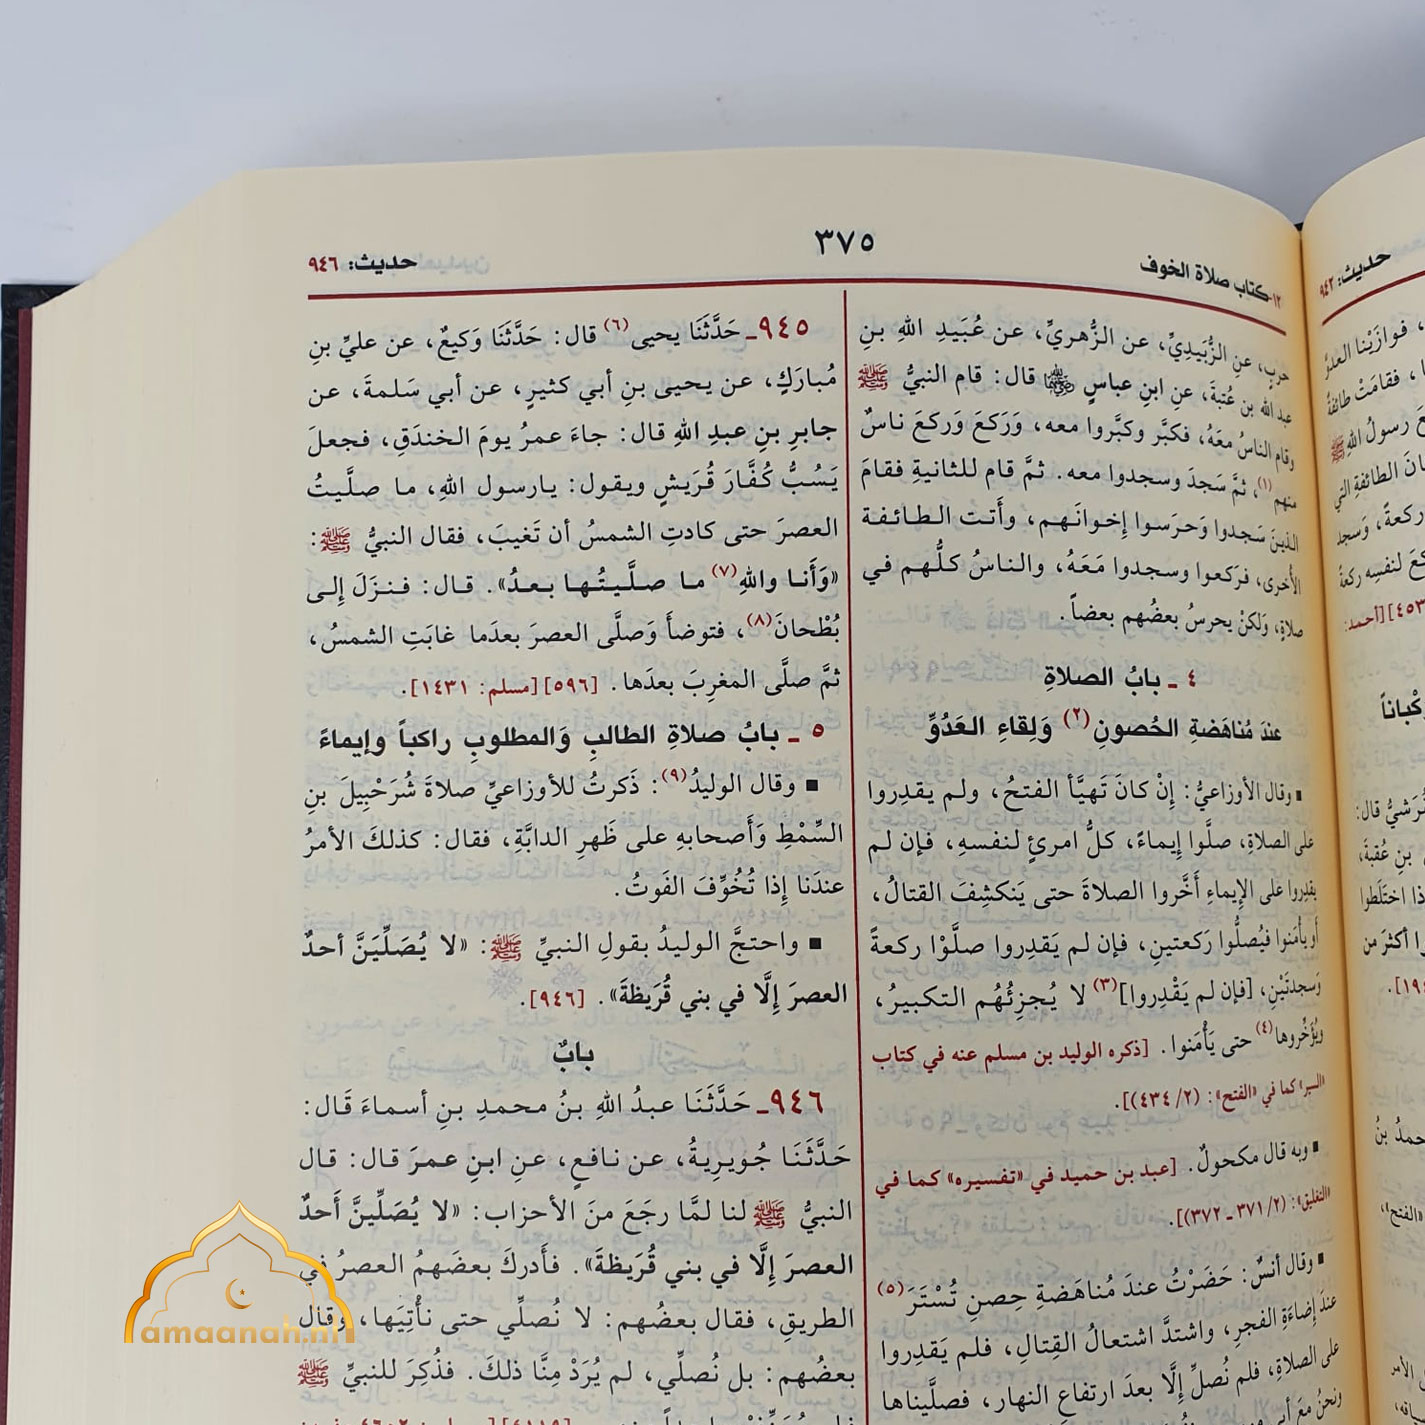 ٣٧٥
١٢-كتاب صلاة الخوف
حديث: ٩٤٦
حربٍ، عنِ الزُّبَيدِيِّ، عن الزُّهريِّ، عن عُبَيدِ اللهِ بنِ
عبد الله بن عُتبةَ، عنِ ابنِ عباسٍ ﵄ قال: قام النبيُّ ﷺ
وقام الناسُ معَهُ، فكبَّر وكبَّروا معه، وَرَكعَ وَركعَ ناسٌ
منهم(١)، ثمَّ سَجدَ وسجدوا معه. ثمَّ قام للثانيةِ فقامَ
الذينَ سَجدوا وَحرَسوا إِخوانَهم، وأَتت الطائفة
الأُخرى، فرَكعوا وسجدوا مَعَهُ، والناسُ كلُّهم في
صلاةٍ، وَلكنْ يحرسُ بعضُهم بعضاً.
٤ ـ بابُ الصلاةِ
عندَ مُناهَضةِ الحُصونِ(٢) وَلِقاءِ العَدُوِّ
■ وقال الأوزاعيُّ: إِنْ كانَ تَهيَّأ الفتحُ، ولم يقدِروا
على الصلاةِ، صلَّوا إِيماءً، كلُّ امرئٍ لنفسهِ، فإن لم
يقدِروا على الإيماءِ أَخَّروا الصلاةَ حتى يَنكشِفَ القتالُ،
أَو يأمَنوا فيُصلُّوا رَكعتينِ، فإن لم يَقدِروا صلَّوْا ركعةً
وَسجدَتَيْنِ، [فإن لم يَقْدِروا](٣) لا يُجزِئُهُم التكبيرُ،
ويُؤَخِّروها(٤) حتى يَأْمَنوا. [ذكره الوليد بن مسلم عنه في كتاب
«السير» كما في «الفتح»: (٢/ ٤٣٤)].
■ وبه قال مكحولٌ. [عبد بن حميد في «تفسيره» كما في
«التغليق»: (٢/ ٣٧١ ـ ٣٧٢)].
■ وقال أنسٌ: حَضَرْتُ عندَ مُناهَضةِ حِصنِ تُسْتَرَ(٥)
عندَ إِضاءَةِ الفجرِ، واشتدَّ اشتعالُ القِتالِ، فلم يَقدِروا
على الصلاةِ، فلم نُصلِّ إِلَّا بعدَ ارتفاعِ النهار، فصلَّيناها
٩٤٥ـ حَدَّثَنَا يحيى(٦) قال: حَدَّثَنَا وَكيعٌ، عن عليِّ بنِ
مُبارَكٍ، عن يحيى بنِ أبي كثيرٍ، عن أبي سَلمةَ، عن
جابرِ بنِ عبدِ اللهِ قال: جاءَ عمرُ يومَ الخندَقِ، فجعلَ
يَسُبُّ كُفَّارَ قُرَيشٍ ويقول: يارسول اللهِ، ما صلَّيتُ
العصرَ حتى كادتِ الشمسُ أن تَغيبَ، فقال النبيُّ ﷺ:
«وَأَنا واللهِ(٧) ما صلَّيتُها بعدُ». قال: فنزَلَ إِلى
بُطْحانَ(٨)، فتوضأَ وَصلَّى العصرَ بعدَما غابَتِ الشمسُ،
ثمَّ صلَّى المغرِبَ بعدَها. [٥٩٦] [مسلم: ١٤٣١].
٥ ـ بابُ صلاةِ الطالبِ وَالمطلوبِ راكباً وإيماءً
■ وقال الوليدُ(٩): ذَكرتُ للأوزاعيِّ صلاةَ شُرَحْبِيلَ بنِ
السِّمْطِ وَأَصحابهِ على ظَهرِ الدابَّةِ، فقال: كذلكَ الأمرُ
عندَنا إِذا تُخُوِّفَ الفَوتُ.
■ واحتجَّ الوليدُ بقولِ النبيِّ ﷺ: «لا يُصَلِّيَنَّ أحدٌ
العصرَ إِلَّا في بني قُرَيظةَ». [٩٤٦].
بابٌ
٩٤٦ـ حَدَّثَنَا عبدُ اللهِ بنُ محمدِ بنِ أسماءَ قَال:
حَدَّثَنَا جُويرِيةُ، عن نافعٍ، عنِ ابنِ عمرَ قال: قال
النبيُّ ﷺ لنا لمَّا رجَعَ منَ الأحزاب: «لا يُصَلِّينَّ أَحدٌ
العصرَ إِلَّا في بني قُرَيظةَ». فأَدركَ بعضَهمُ العصرُ في
الطريقِ، فقال بعضُهم: لا نُصلِّي حتى نأْتِيَها، وقال
بعضُهم: بل نُصلِّي، لم يُرَدْ مِنَّا ذلكَ. فذُكِرَ للنبيِّ ﷺ
حديث: ٩٤٢
amaanah.nl